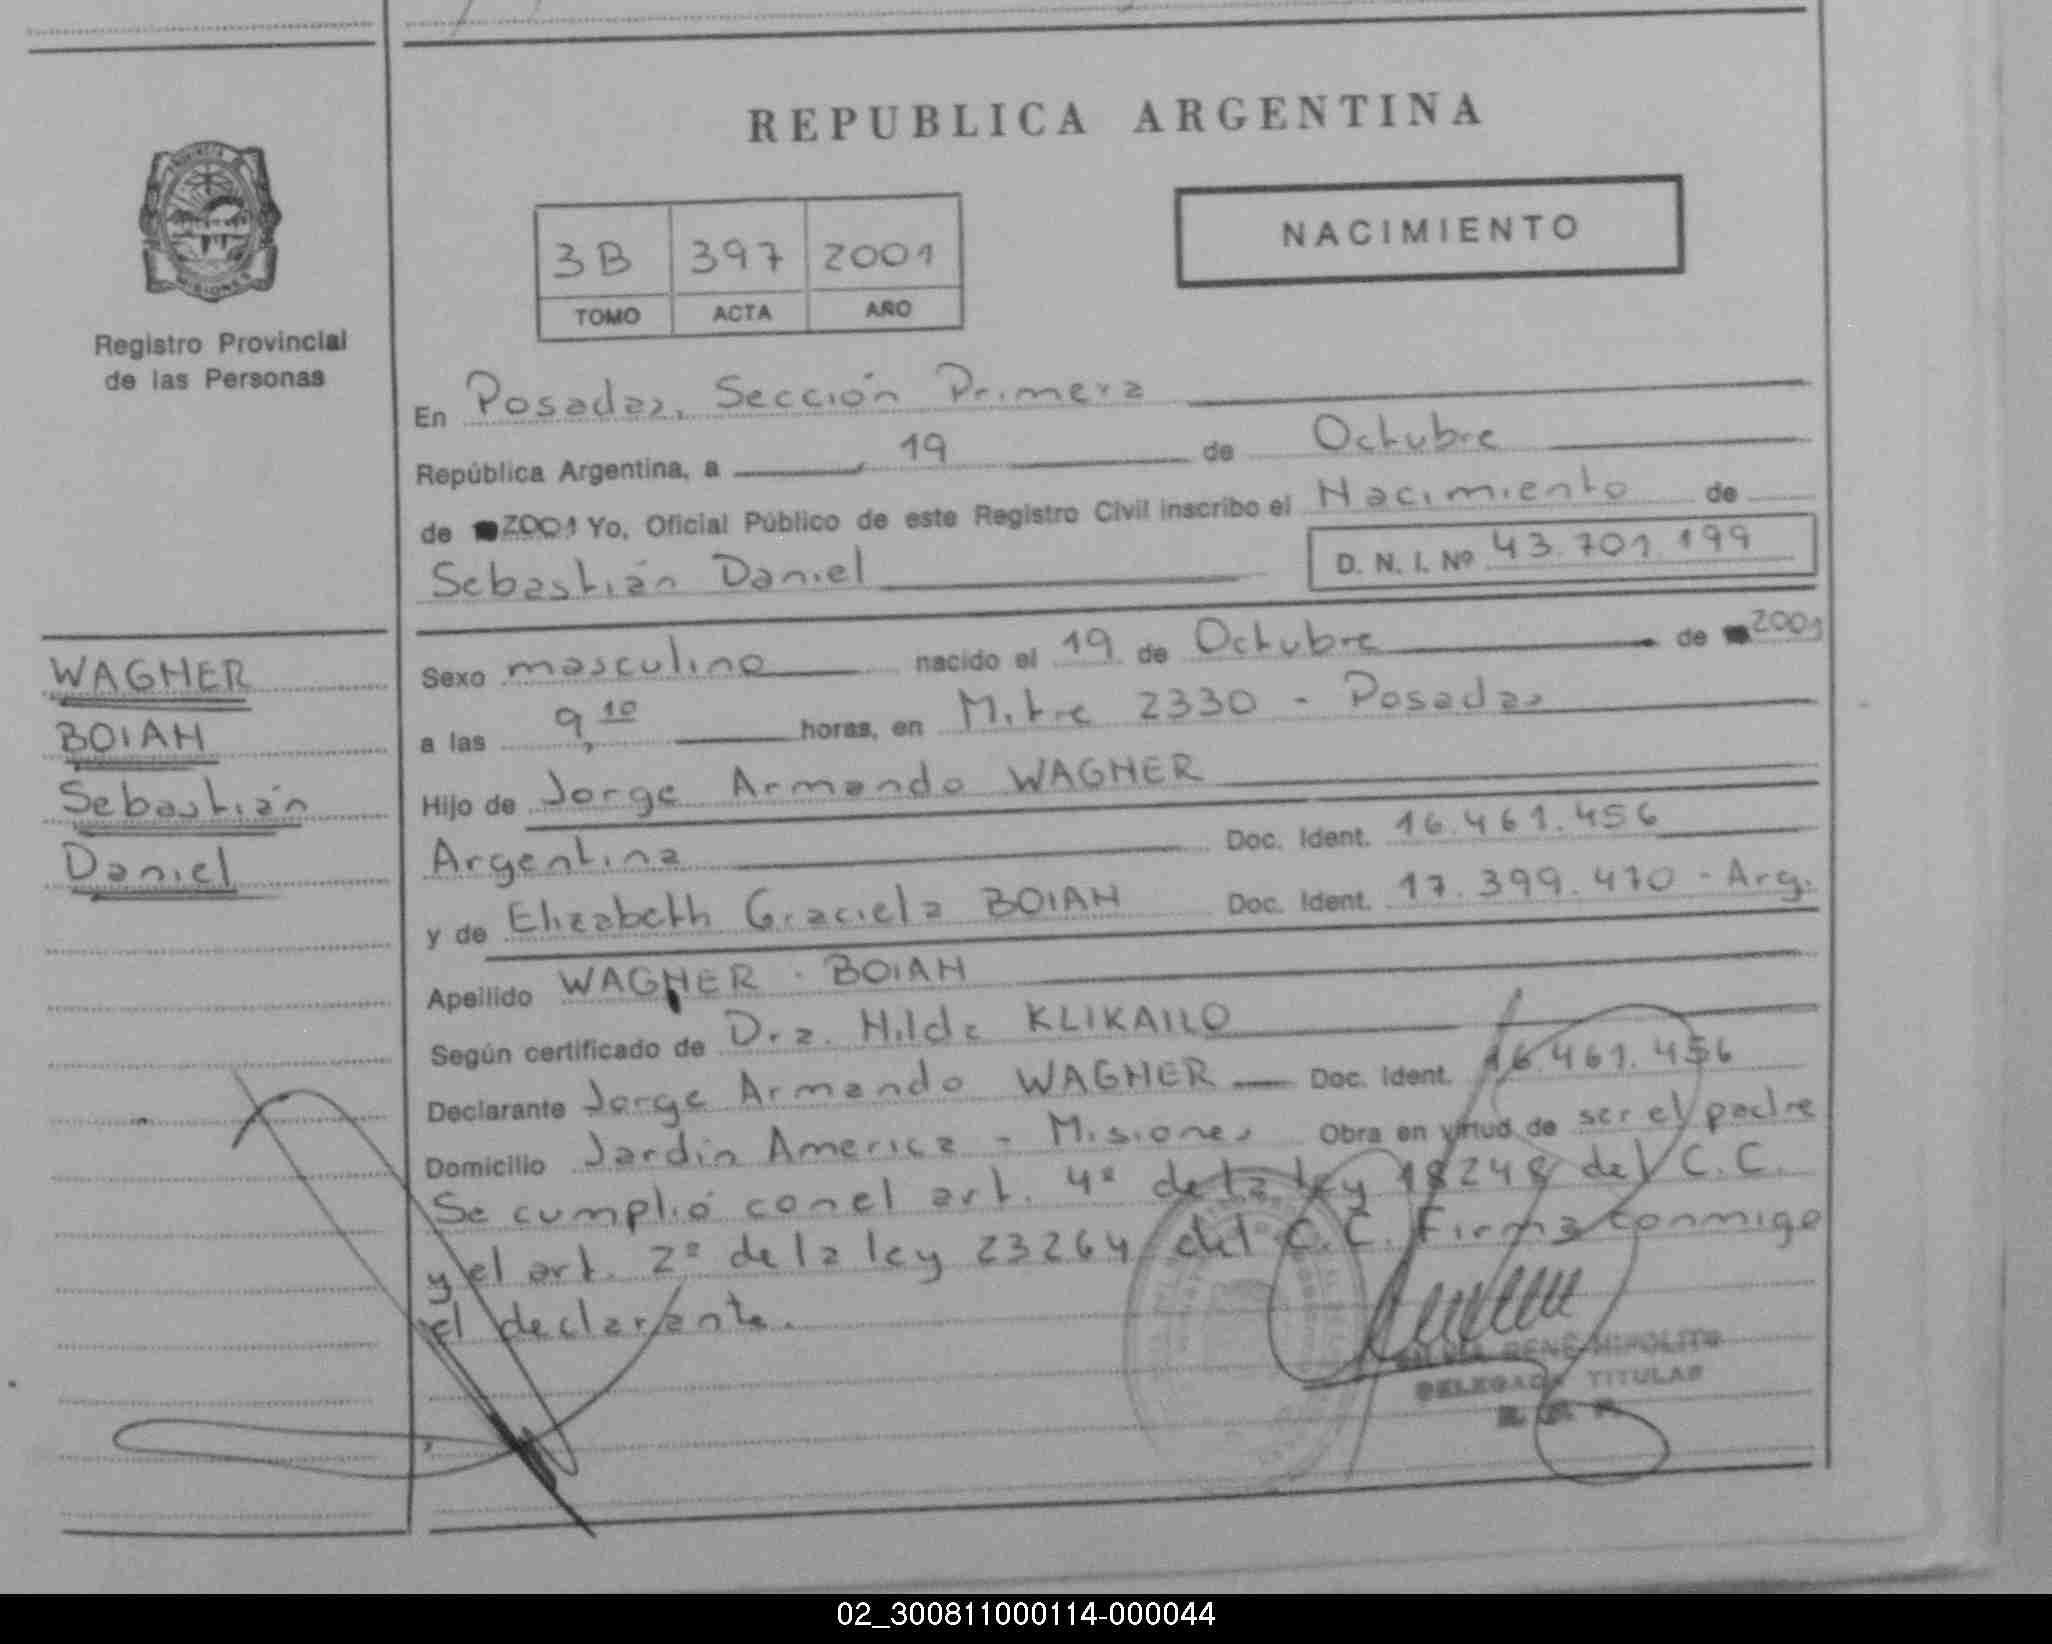 REPUBLICA ARGENTINA
NACIMIENTO
3B 397 2001
TOMO ACTA AÑO
Registro Provincial
de las Personas
En Posadas, Sección Primera
República Argentina, a 19 de Octubre
de 2001 Yo, Oficial Público de este Registro Civil inscribo el Nacimiento de
Sebastián Daniel D. N. I. Nº 43.701.199
WAGNER
BOIAN
Sebastián
Daniel
Sexo masculino nacido el 19 de Octubre de 2001
a las 9,10 horas, en Mitre 2330 - Posadas
Hijo de Jorge Armando WAGNER
Argentina Doc. Ident. 16.461.456
y de Elizabeth Graciela BOIAN Doc. Ident. 17.399.470 - Arg.
Apellido WAGNER - BOIAN
Según certificado de Dra. Hilda KLIKAILO
Declarante Jorge Armando WAGNER Doc. Ident. 16.461.456
Domicilio Jardín America - Misiones Obra en virtud de ser el padre
Se cumplió con el art. 4º de la ley 18248 del C.C.
y el art. 2º de la ley 23264 del C.C. Firma conmigo
el declarante.
RENE HIPOLITO
TITULAR
02_300811000114-000044